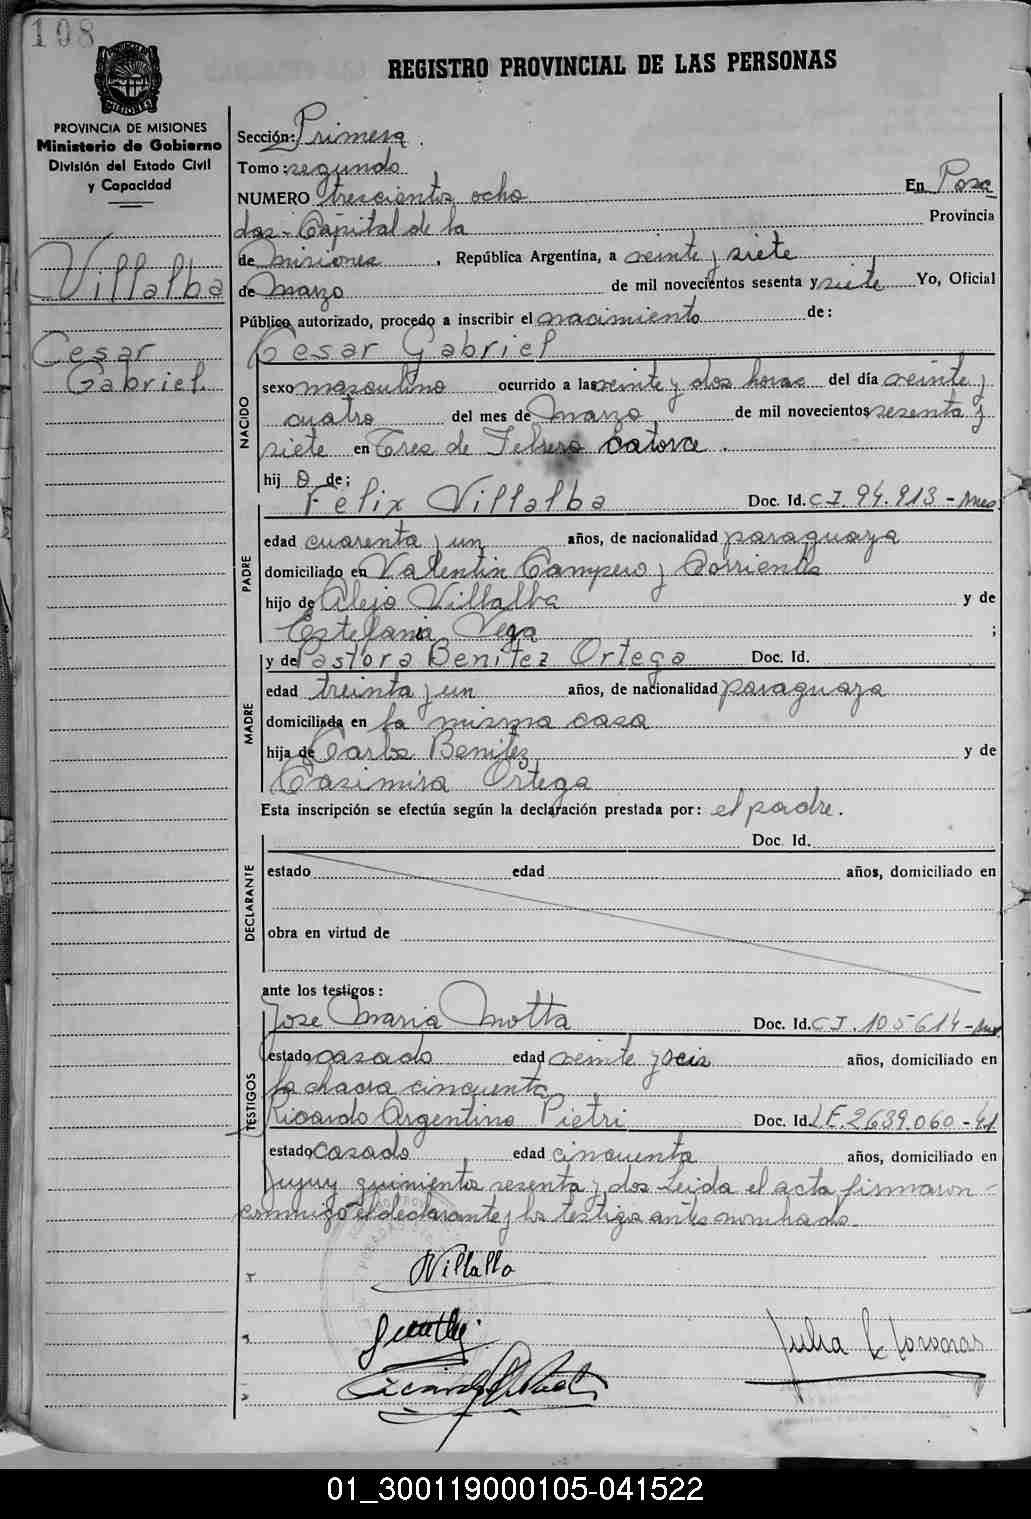 108
REGISTRO PROVINCIAL DE LAS PERSONAS
PROVINCIA DE MISIONES
Ministerio de Gobierno
División del Estado Civil
y Capacidad
Villalba
Cesar
Gabriel.
Sección: Primera.
Tomo: segundo
NUMERO trescientos ocho En Posa
das - Capital de la Provincia
de Misiones, República Argentina, a veinte y siete
de Marzo de mil novecientos sesenta y siete Yo, Oficial
Público autorizado, procedo a inscribir el nacimiento de:
Cesar Gabriel
NACIDO
sexo masculino ocurrido a las veinte y dos horas del día veinte y
cuatro del mes de Marzo de mil novecientos sesenta y
siete en Tres de Febrero catorce.
hij o de:
Felix Villalba Doc. Id. CI. 94.913 - Mnes
PADRE
edad cuarenta y un años, de nacionalidad paraguaya
domiciliado en Valentin Campero y Corrientes
hijo de Alejo Villalba y de
Estefania Vega ;
y de Pastora Benitez Ortega Doc. Id.
MADRE
edad treinta y un años, de nacionalidad paraguaya
domiciliada en la misma casa
hija de Carlos Benitez y de
Casimira Ortega
Esta inscripción se efectúa según la declaración prestada por: el padre.
Doc. Id.
DECLARANTE
estado edad años, domiciliado en
obra en virtud de
ante los testigos:
Jose Maria Motta Doc. Id. CI. 105614 - Mnes
TESTIGOS
estado casado edad veinte y seis años, domiciliado en
la chacra cincuenta
Ricardo Argentino Pietri Doc. Id. LE. 2639.060 - 41
estado casado edad cincuenta años, domiciliado en
Jujuy quinientos sesenta y dos Leida el acta firmaron
conmigo el declarante y los testigos antes nombrado.
Villalba
01_300119000105-041522